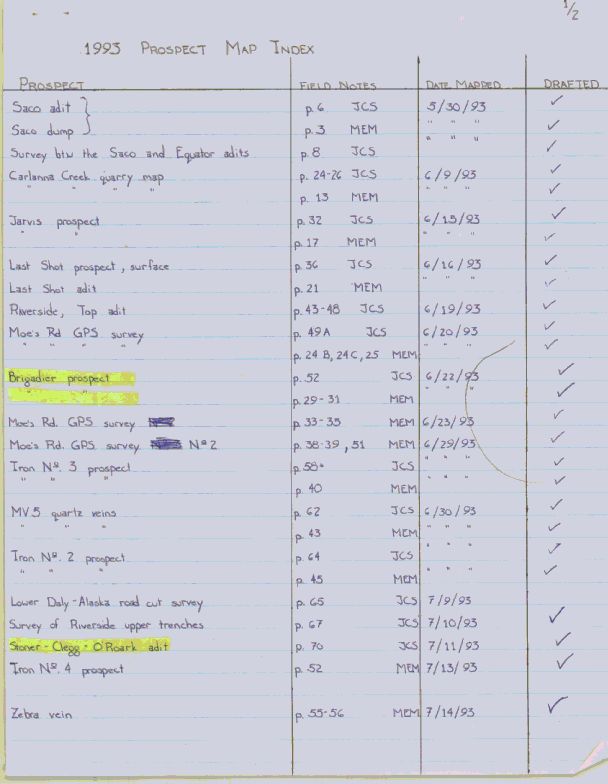 1/2
1993 PROSPECT MAP INDEX
PROSPECT FIELD NOTES DATE MAPPED DRAFTED
Saco adit } p. 6 JCS 5/30/93 ✓
Saco dump } p. 3 MEM " " " ✓
Survey btw the Saco and Equator adits p. 8 JCS " " " ✓
Carlanna Creek quarry map p. 24-26 JCS 6/9/93 ✓
" " " " p. 13 MEM " " " ✓
Jarvis prospect p. 32 JCS 6/15/93 ✓
" " p. 17 MEM " " " ✓
Last Shot prospect, surface p. 36 JCS 6/16/93 ✓
Last Shot adit p. 21 MEM ✓
Riverside, Top adit p. 43-48 JCS 6/19/93 ✓
Moe's Rd GPS survey p. 49A JCS 6/20/93 ✓
" " " " p. 24B, 24C, 25 MEM " " " ✓
Brigadier prospect p. 52 JCS 6/22/93 ✓
" " p. 29-31 MEM " " " ✓
Moe's Rd. GPS survey p. 33-35 MEM 6/23/93 ✓
Moe's Rd. GPS survey Nº 2 p. 38-39, 51 MEM 6/29/93 ✓
Iron Nº. 3 prospect p. 58 JCS " " " ✓
" " " p. 40 MEM " " " ✓
MV5 quartz veins p. 62 JCS 6/30/93 ✓
" " " p. 43 MEM " " " ✓
Iron Nº. 2 prospect p. 64 JCS " " " ✓
" " " p. 45 MEM " " " ✓
Lower Daly-Alaska road cut survey p. 65 JCS 7/9/93
Survey of Riverside upper trenches p. 67 JCS 7/10/93 ✓
Stoner-Clegg-O'Roark adit p. 70 JCS 7/11/93 ✓
Iron Nº. 4 prospect p. 52 MEM 7/13/93 ✓
Zebra vein p. 55-56 MEM 7/14/93 ✓